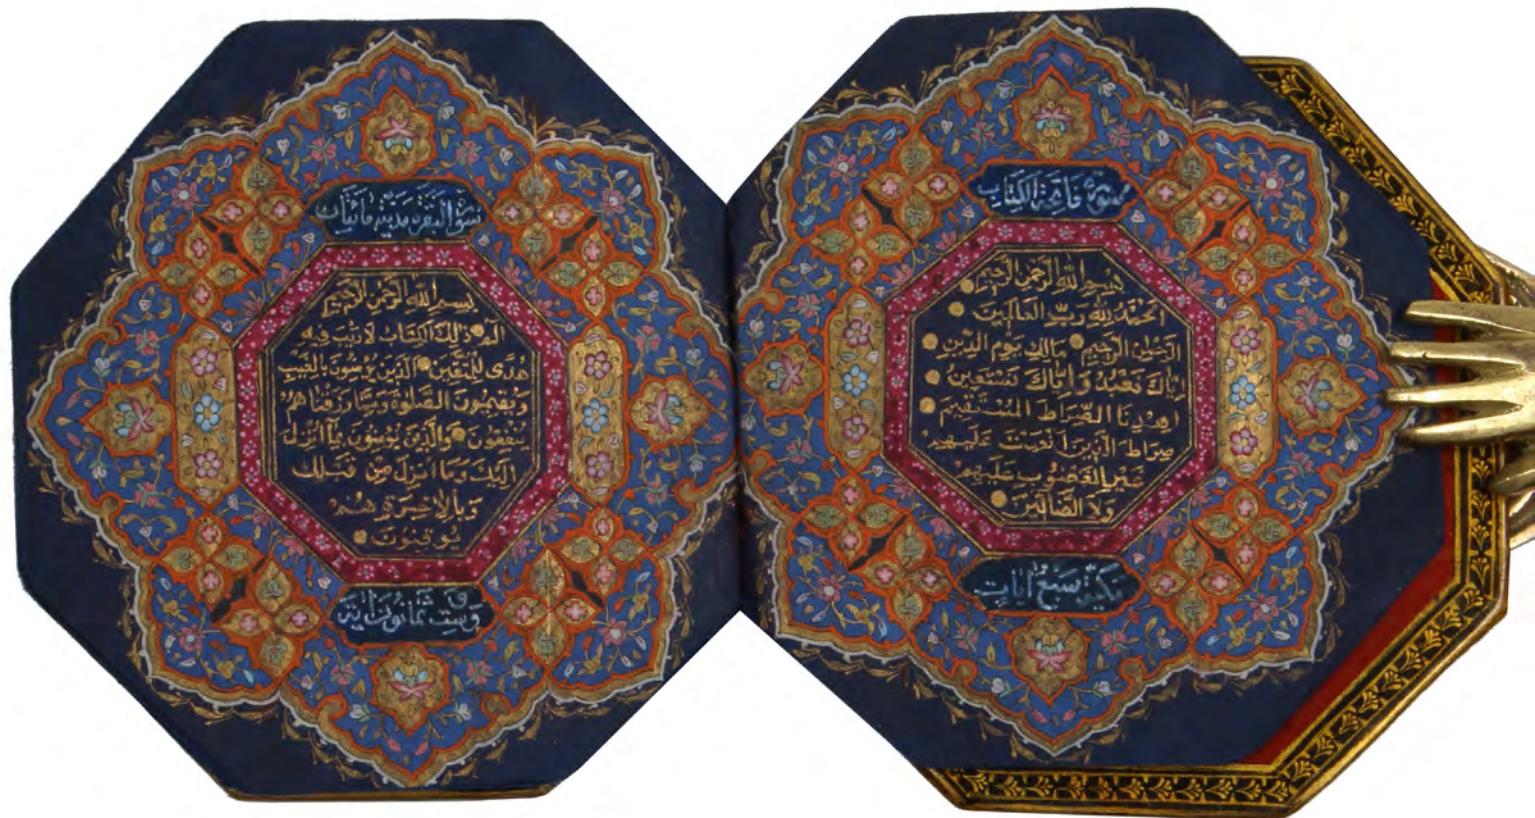 سورة فاتحة الكتاب
بسم الله الرحمن الرحيم
الحمد لله رب العالمين
الرحمن الرحيم مالك يوم الدين
اياك نعبد واياك نستعين
اهدنا الصراط المستقيم
صراط الذين انعمت عليهم
غير المغضوب عليهم
ولا الضالين
مكية سبع ايات
سورة البقرة مدنية مائتان
بسم الله الرحمن الرحيم
الم ذلك الكتاب لا ريب فيه
هدى للمتقين الذين يؤمنون بالغيب
ويقيمون الصلوة ومما رزقناهم
ينفقون والذين يؤمنون بما انزل
اليك وما انزل من قبلك
وبالاخرة هم
يوقنون
وست ثمانون اية